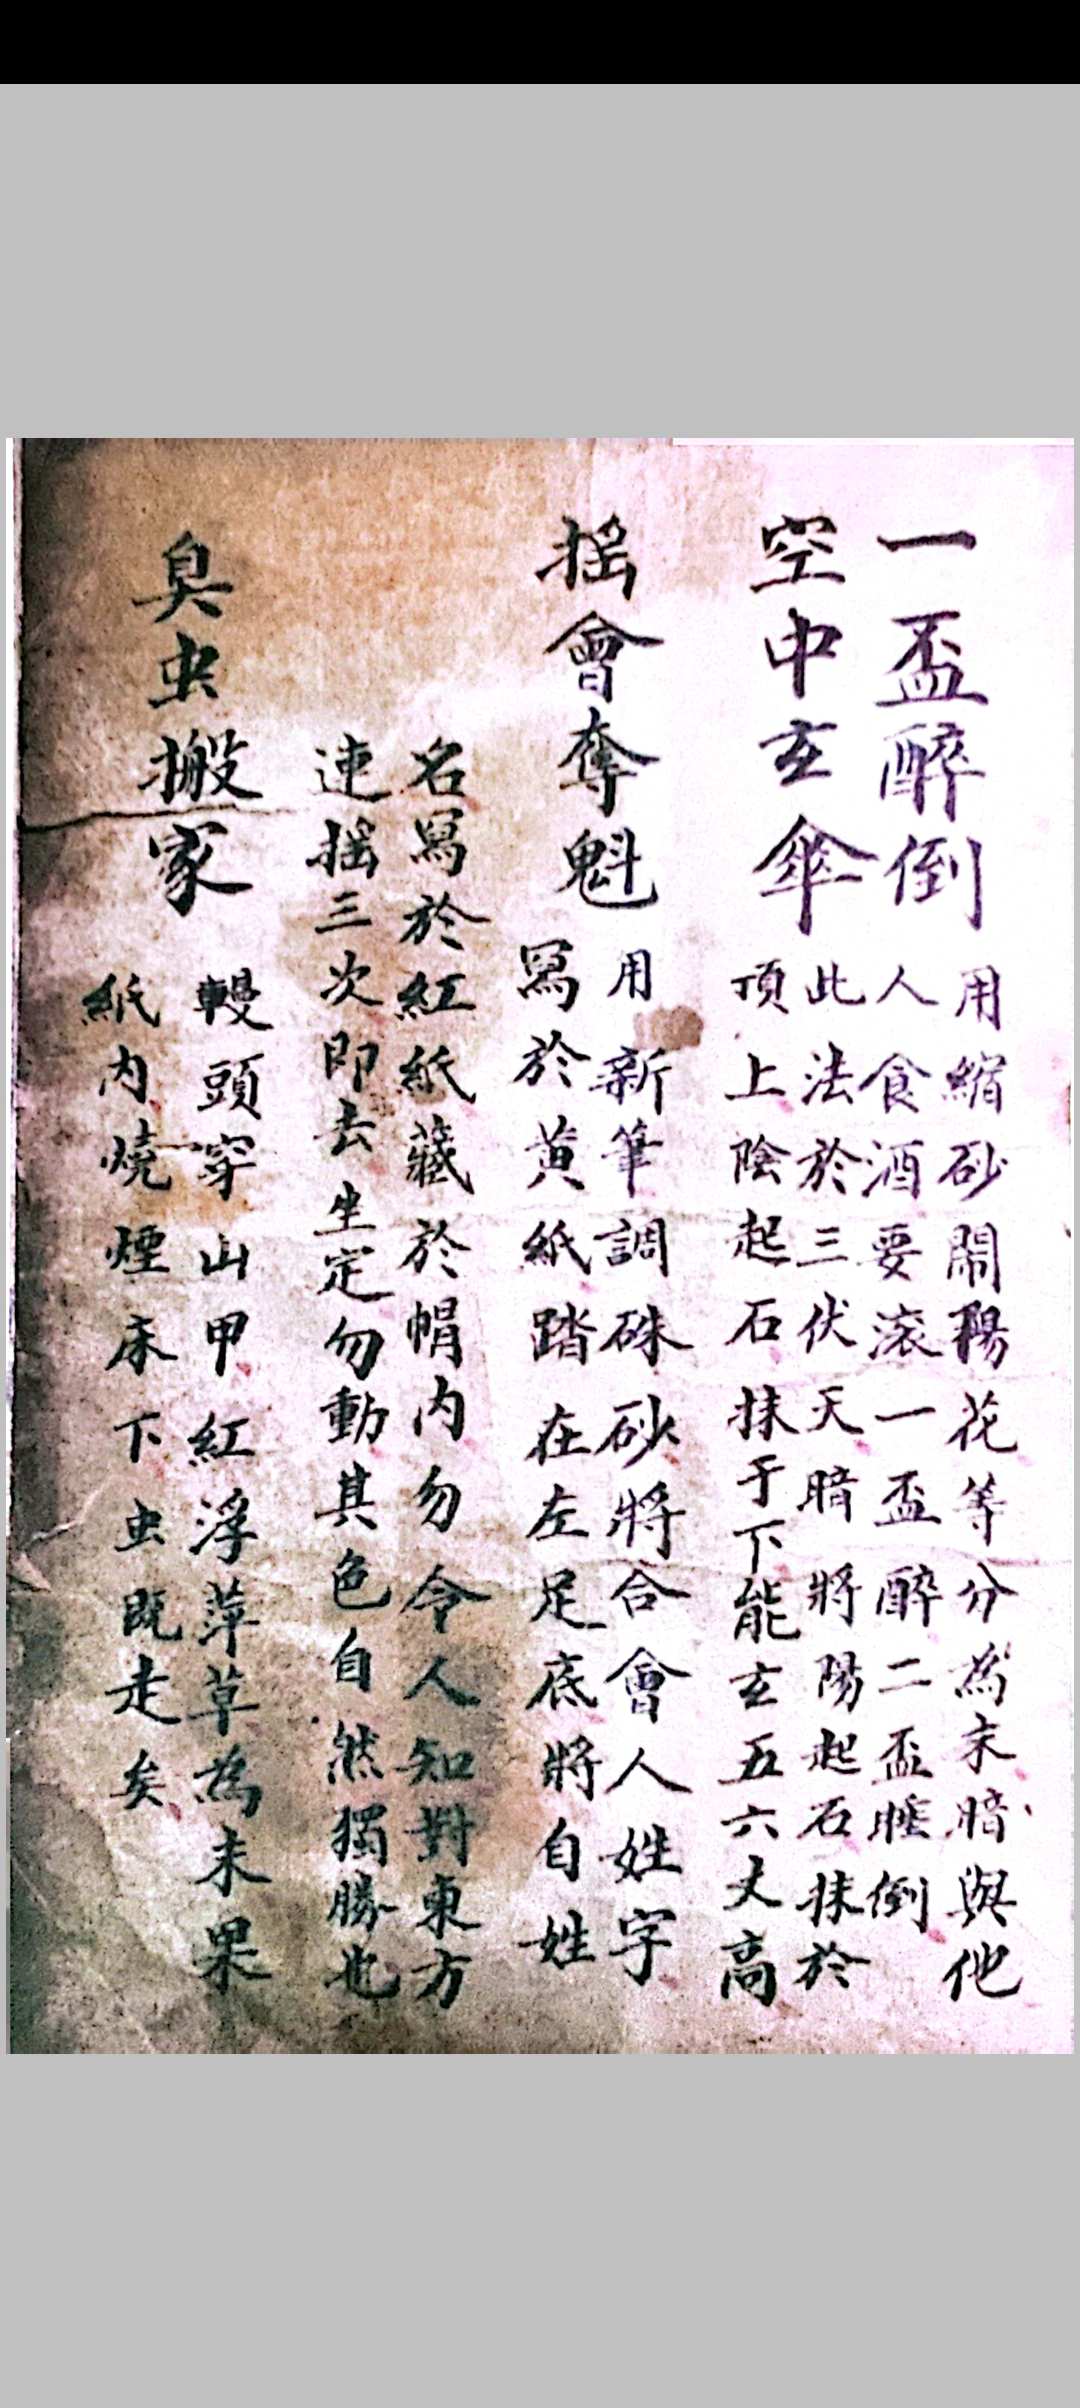 一盃醉倒
用縮砂鬧楊花等分為末暗與他
人食酒要滚一盃醉二盃睡倒
空中玄傘
此法於三伏天暗將陽起石抹於
頂上陰起石抹于下能玄五六丈高
摇會奪魁
用新筆調硃砂將合會人姓字
寫於黄紙踏在左足底將自姓
名寫於紅紙藏於帽内勿令人知對東方
連摇三次即去坐定勿動其色自然獨勝也
臭虫搬家
鳗頭穿山甲紅浮萍草為末果
紙内燒煙床下虫既走矣